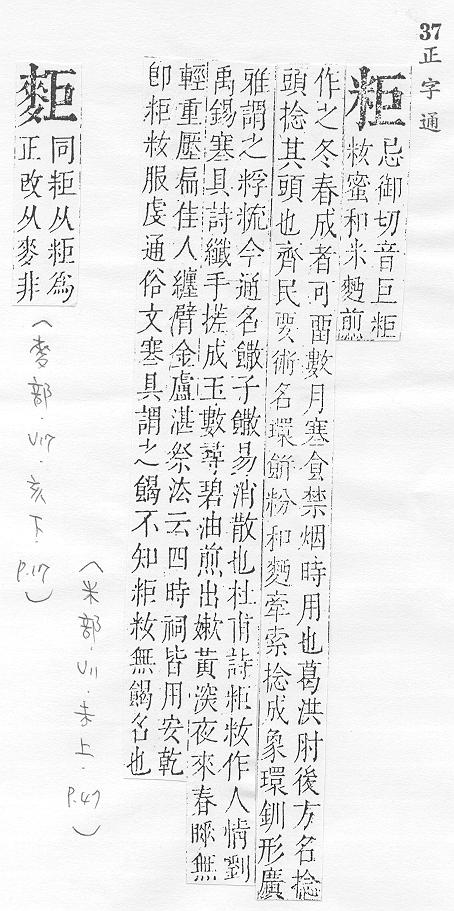 37
正字通
粔
忌御切音巨粔
籹蜜和米麪煎
作之冬春成者可畱數月寒食禁烟時用也葛洪肘後方名捻
頭捻其頭也齊民要術名環餅粉和麪牽索捻成象環釧形廣
雅謂之粰䊗今通名饊子饊易消散也杜甫詩粔籹作人情劉
禹錫寒具詩纖手搓成玉數尋碧油煎出嫩黃深夜來春睡無
輕重壓扁佳人纏臂金盧諶祭法云四時祠皆用安乾
卽粔籹服虔通俗文寒具謂之餲不知粔籹無餲名也
䵶
同粔从粔爲
正改从麥非
(麥部.V17.亥下
P.17)
(米部.V11.未上.
P.47)